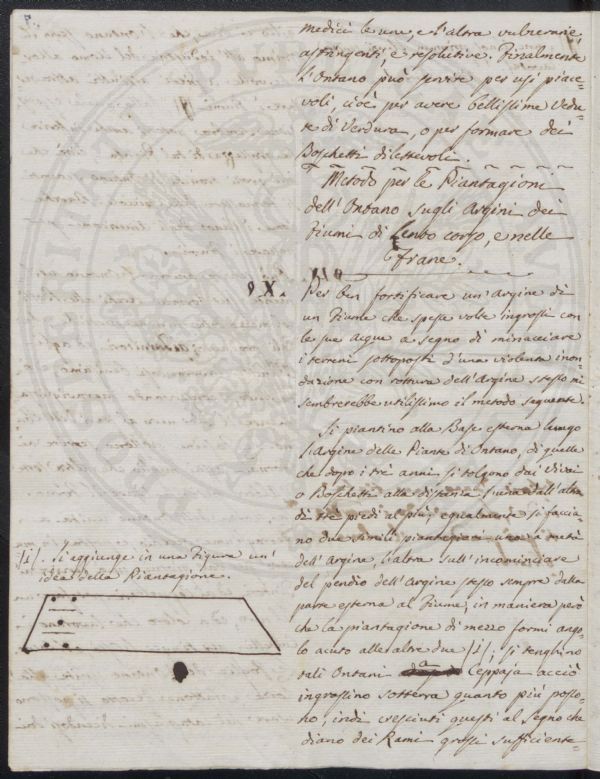 medici le une, e l'altra vulnerarie,
astringenti, e resolutive. Finalmente
l'Ontano può servire per usi piace=
voli, cioè per avere bellissime Vedu=
te di Verdura, o per formare dei
Boschetti dilettevoli.
Metodo per le Piantagioni
dell'Ontano sugli Argini dei
fiumi di Lento corso, e nelle
Frane.
9 X.
Per ben fortificare un'Argine di
un Fiume che spesse volte ingrossi con
le sue acque a segno di minacciare
i terreni sottoposti d'una violenta inon=
dazione con rottura dell'Argine stesso mi
sembrerebbe utilissimo il metodo seguente.
Si piantino alla Base esterna lungo
l'Argine delle Piante di Ontano, di quelle
che dopo i trè anni si tolgono dai Vivai
o Boschetti alla distanza l'una dall'altra
di trè piedi al più, egualmente si faccia=
no due simili piantagioni una a metà
dell'Argine, l'altra sull'incominciare
del pendio dell'Argine stesso sempre dalla
parte esterna al Fiume, in maniera però
che la piantagione di mezzo formi ango
lo acuto alle altre due /1/. si tenghino
tali Ontani a Ceppaja acciò
ingrossino sotterra quanto più posso=
no, indi cresciuti questi al segno che
diano dei Rami grossi sufficiente=
/1/. Si aggiunge in una Figura un'
idea della Piantagione.